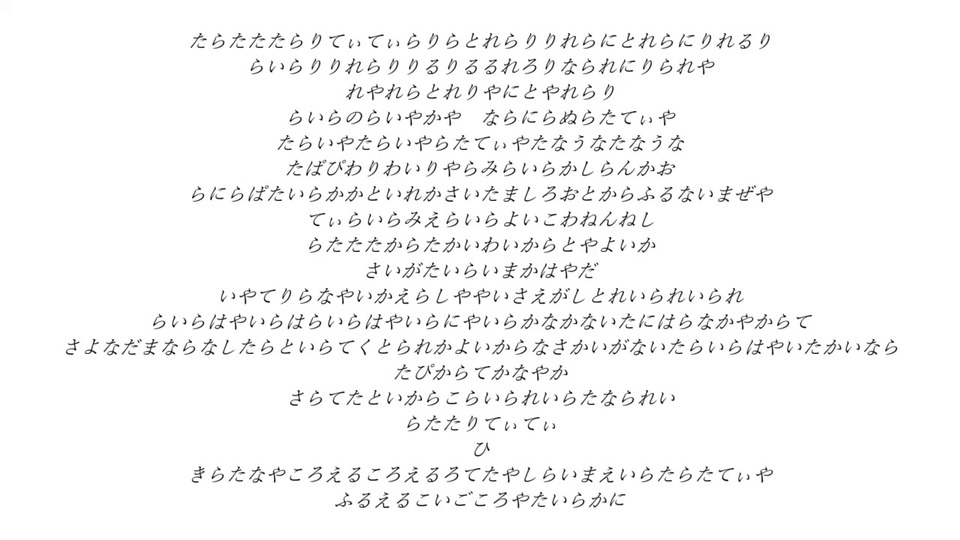 たらたたたらりてぃてぃらりらとれらりりれらにとれらにりれるり
らいらりりれらりりるりるるれろりなられにりられや
れやれらとれりやにとやれらり
らいらのらいやかや　ならにらぬらたてぃや
たらいやたらいやらたてぃやたなうなたなうな
たぱぴわりわいりやらみらいらかしらんかお
らにらぱたいらかかといれかさいたましろおとからふるないまぜや
てぃらいらみえらいらよいこわねんねし
らたたたからたかいわいからとやよいか
さいがたいらいまかはやだ
いやてりらなやいかえらしややいさえがしとれいられいられ
らいらはやいらはらいらはやいらにやいらかなかないたにはらなかやからて
さよなだまならなしたらといらてくとられかよいからなさかいがないたらいらはやいたかいなら
たぴからてかなやか
さらてたといからこらいられいらたなられい
らたたりてぃてぃ
ひ
きらたなやころえるころえるろてたやしらいまえいらたらたてぃや
ふるえるこいごころやたいらかに